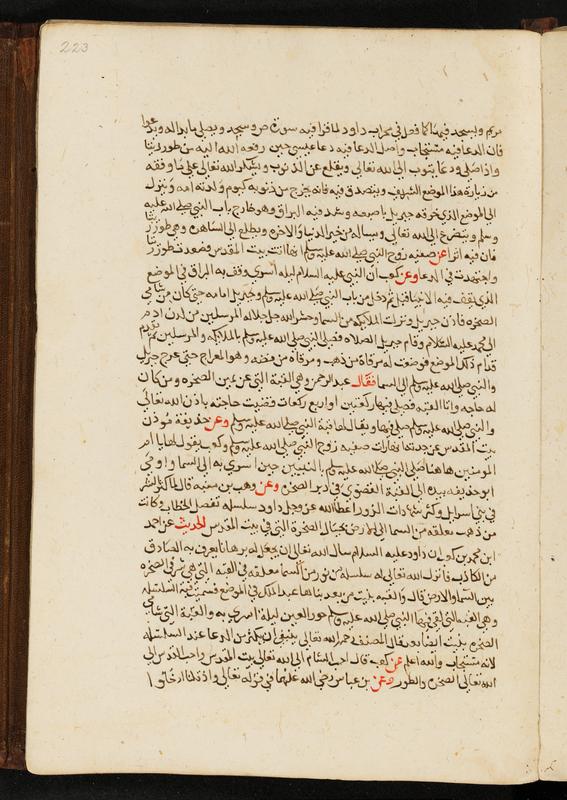 223
مريم ويسجد فيها كما فعل في محراب داود لما قرا فيه سورة ص وسجد ويصلي بابداله ويدعوا
فان الدعا فيه مستجاب واصل الدعا فيه دعا عيسى حين رفعه الله اليه من طور زيتا
واذا صلى ودعا يتوب الى الله تعالى ويقلع عن الذنوب ويشكر الله تعالى على ما وفقه
من زيارة هذا الموضع الشريف ويتصدق فيه فانه يخرج من ذنوبه كيوم ولدته امه وينزل
الى الموضع الذي خرقه جبريل باصبعه وشد فيه البراق وهو خارج باب النبي صلى الله عليه
وسلم ويتضرع الى الله تعالى ويساله من خير الدنيا والاخرة ويطلع الى الساهرة وهي طور زيتا
فان فيه اثرا عن صفيه زوج النبي صلى الله عليه وسلم انها اتت بيت المقدس فصعدت طور زيتا
واجتهدت في الدعا وعن كعب ان النبي عليه السلام ليلة اسري وقف به البراق في الموضع
الذي يقف فيه الانبيا قبل ثم دخل من باب النبي صلى الله عليه وسلم وجبريل امامه حتى كان من شامي
الصخرة فاذن جبريل ونزلت الملايكة من السما وحشر الله جل جلاله المرسلين من لدن ادم
الى محمد عليه السلام وقام جبريل الصلاه فصلى النبي صلى الله عليه وسلم بالملايكه والمرسلين ثم تقدم
قدام ذلك الموضع فوضعت له مرقاة من ذهب ومرقاة من فضه وهو المعراج حتى عرج جبريل
والنبي صلى الله عليه وسلم الى السما فقال عبد الرحمن وهي القبة التي عن يمين الصخره ومن كان
له حاجه واتا القبه فصلى فيها ركعتين او اربع ركعات وقضيت حاجته باذن الله تعالى
والنبي صلى الله عليه وسلم صلى فيها ويقال لها قبة النبي صلى الله عليه وسلم وعن حذيفة موذن
بيت المقدس عن جدتها انها رات صفيه زوج النبي صلى الله عليه وسلم وكعب يقول لها يا ام
المومنين هاهنا صلى النبي صلى الله عليه وسلم بالنبيين حين اسري به الى السما واومى
ابو حذيفه بيده الى القبة القصوى في دبر الصخره وعن وهب بن منبه قال لما كثر الشر
في بني اسرايل وكثر شهادات الزور اعطا الله عز وجل داود سلسله تفصل الخطاب وكانت
من ذهب معلقه من السما الى الارض بحيال الصخرة التي في بيت المقدس الحديث عن احمد
ابن محمد بن كعب ان داود عليه السلام سال الله تعالى ان يجعل له برهانا يعرف به الصادق
من الكاذب فانزل الله تعالى له سلسلة من نور من السما معلقه في القبه التي هي شرقي الصخره
بين السما والارض قال والقبه بنيت من بعد بناها عبد الملك في الموضع وسميت قبة السلسله
وهي القبه التي لقي فيها النبي صلى الله عليه وسلم حور العين ليلة اسري به والقبة التي شامي
الصخرة بنيت ايضا قال المصنف رحمه الله تعالى ينبغي ان يكثر من الدعا عند السلسله
لانه مستجاب والله اعلم عن كعب قال احب الشام الى الله تعالى بيت المقدس واحب القدس الى
الله تعالى الصخره والطور وعن بن عباس رضي الله عنهما في قوله تعالى واذ قلنا ادخلوا